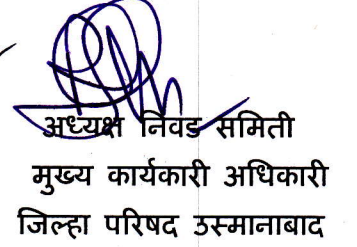 अध्यक्ष निवड समिती
मुख्य कार्यकारी अधिकारी
जिल्हा परिषद उस्मानाबाद